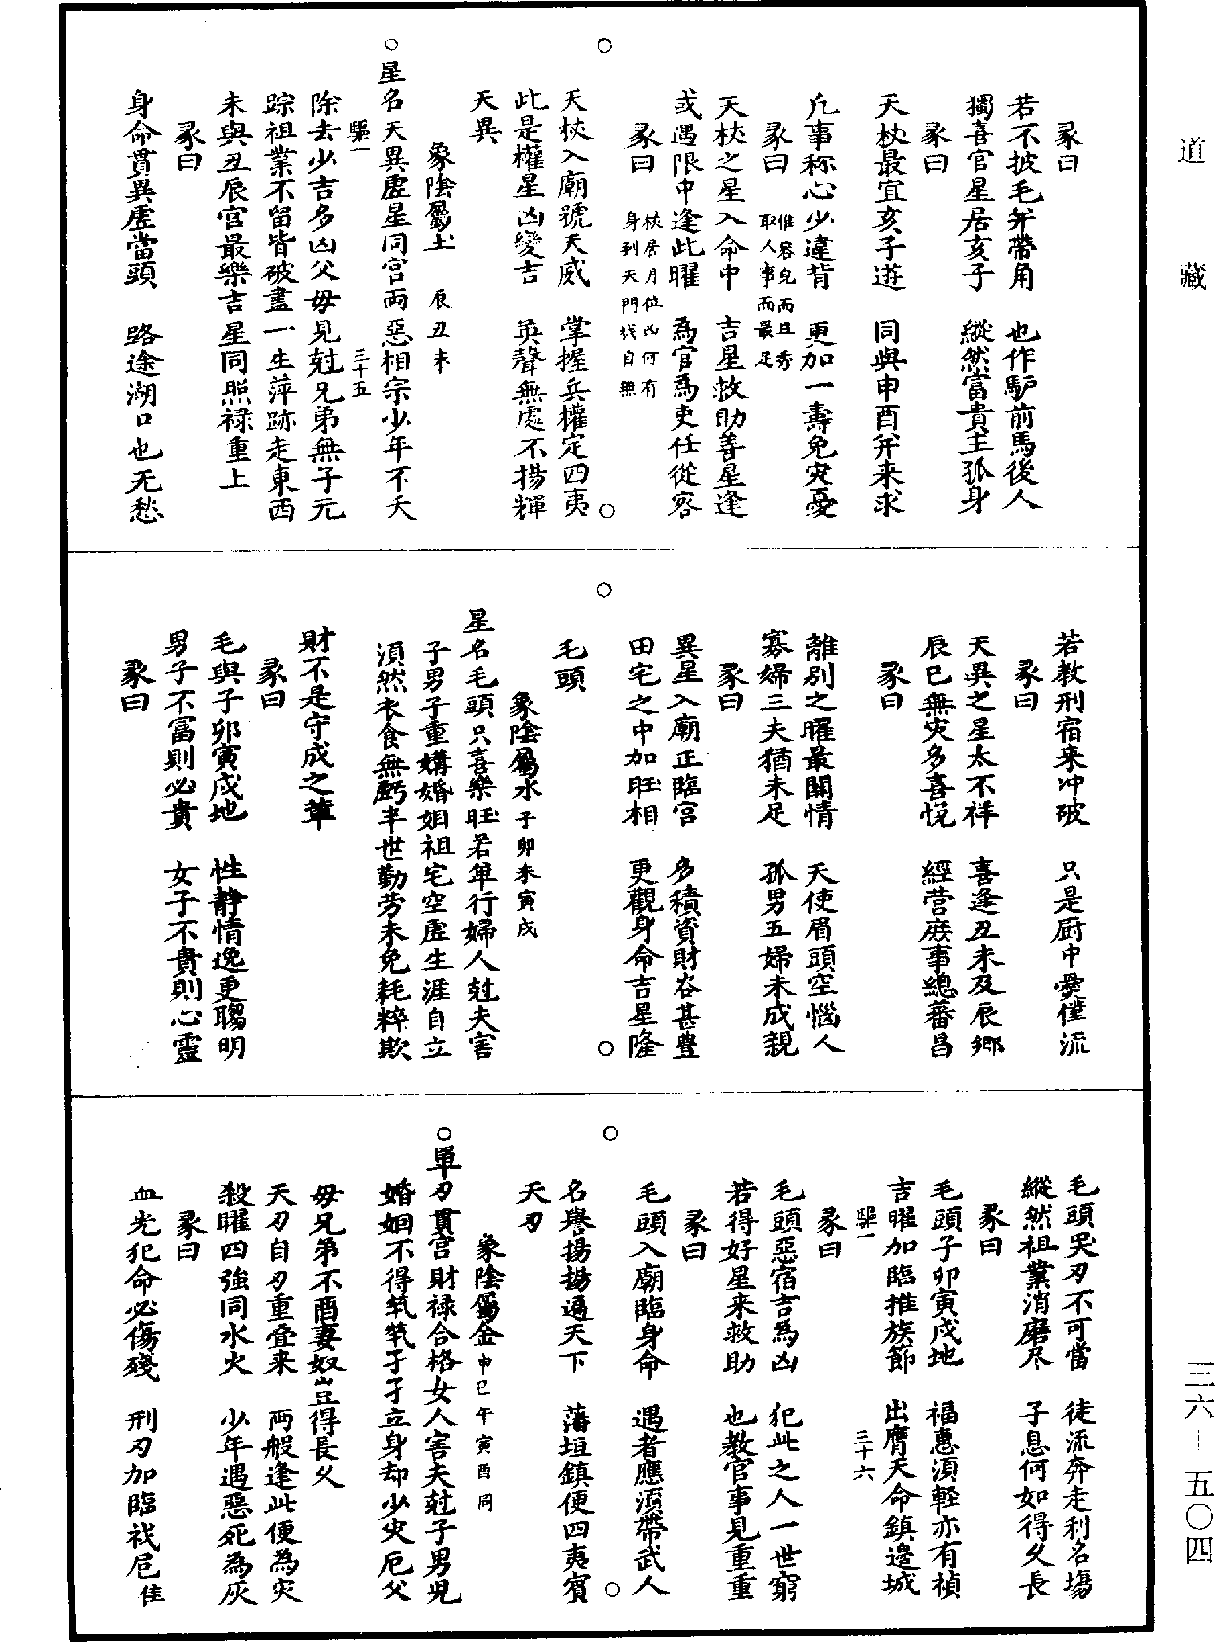 道藏
彖曰
若不披毛并帶角　也作馿前馬後人
獨喜官星居亥子　縱然富貴主孤身
彖曰
天杖最宜亥子遊　同與申酉并来求
凡事称心少違背　更加一壽免灾憂
彖曰
惟容免而且秀
取人事而最足
天杖之星入命中　吉星救助善星逢
或遇限中逢此曜　為官為吏任從容
彖曰
杖居月位凶何有
身到天門伐自無
天杖入廟號天威　掌握兵權定四夷
此是權星凶變吉　英聲無處不揚輝
天異
象陰屬土　辰丑未
星名天異虛星同宫兩惡相宗少年不夭
三十五
除去少吉多凶父母見尅兄弟無子元
踪祖業不留皆破盡一生萍跡走東西
未與丑辰官最樂吉星同照禄重上
彖曰
身命貫異虛當頭　路途湖口也无愁
若教刑宿来冲破　只是厨中愛僕流
彖曰
天異之星太不祥　喜逢丑未及辰鄉
辰巳無灾多喜悦　經营庶事總蕃昌
彖曰
離别之曜最關情　天使眉頭空惱人
寡婦三夫猶未足　孤男五婦未成親
彖曰
異星入廟正臨宫　多積資財谷甚豊
田宅之中加旺相　更觀身命吉星隆
毛頭
象陰屬水子卯未寅戌
星名毛頭只喜樂旺若单行婦人尅夫害
子男子重媾婚姻祖宅空虛生涯自立
湏然衣食無虧半世勤劳未免耗粹欺
財不是守成之輩
彖曰
毛與子卯寅戌地　性静情逸更聰明
男子不富則必貴　女子不貴則心靈
彖曰
毛頭哭刃不可當　徒流奔走利名塲
縱然祖業消磨尽　子息何如得久長
彖曰
毛頭子卯寅戌地　福惠湏軽亦有禎
吉曜加臨推族節　出膺天命鎮邉城
三十六
彖曰
毛頭惡宿吉為凶　犯此之人一世窮
若得好星来救助　也教官事見重重
彖曰
毛頭入廟臨身命　遇者應湏帶武人
名譽揚揚遍天下　藩垣鎮便四夷賓
天刃
象陰屬金申巳午寅酉同
單刃貫宫財禄合格女人害夫尅子男児
婚姻不得煢煢子孑立身却少灾厄父
母兄弟不酉妻奴豈得長久
天刃自刃重叠来　两般逢此便為灾
殺曜四強同水火　少年遇惡死為灰
彖曰
血光犯命必傷殘　刑刃加臨祅厄隹
三六—五〇四